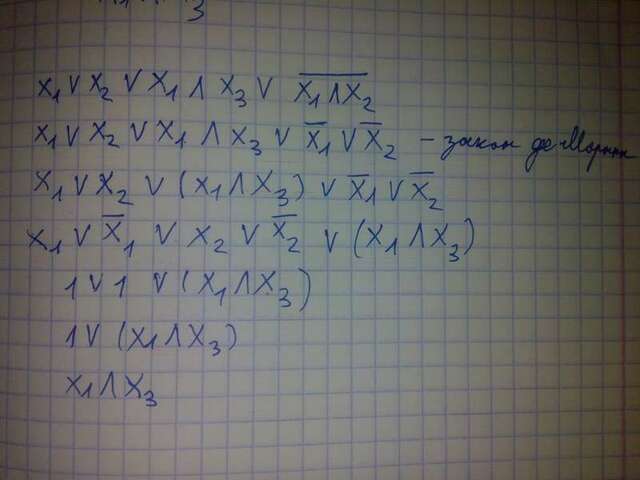 3
x₁ ∨ x₂ ∨ x₁ ∧ x₃ ∨ x̅₁̅ ̅∧̅ ̅x̅₂̅
x₁ ∨ x₂ ∨ x₁ ∧ x₃ ∨ x̅₁ ∨ x̅₂ – закон де Моргана
x₁ ∨ x₂ ∨ (x₁ ∧ x₃) ∨ x̅₁ ∨ x̅₂
x₁ ∨ x̅₁ ∨ x₂ ∨ x̅₂ ∨ (x₁ ∧ x₃)
1 ∨ 1 ∨ (x₁ ∧ x₃)
1 ∨ (x₁ ∧ x₃)
x₁ ∧ x₃